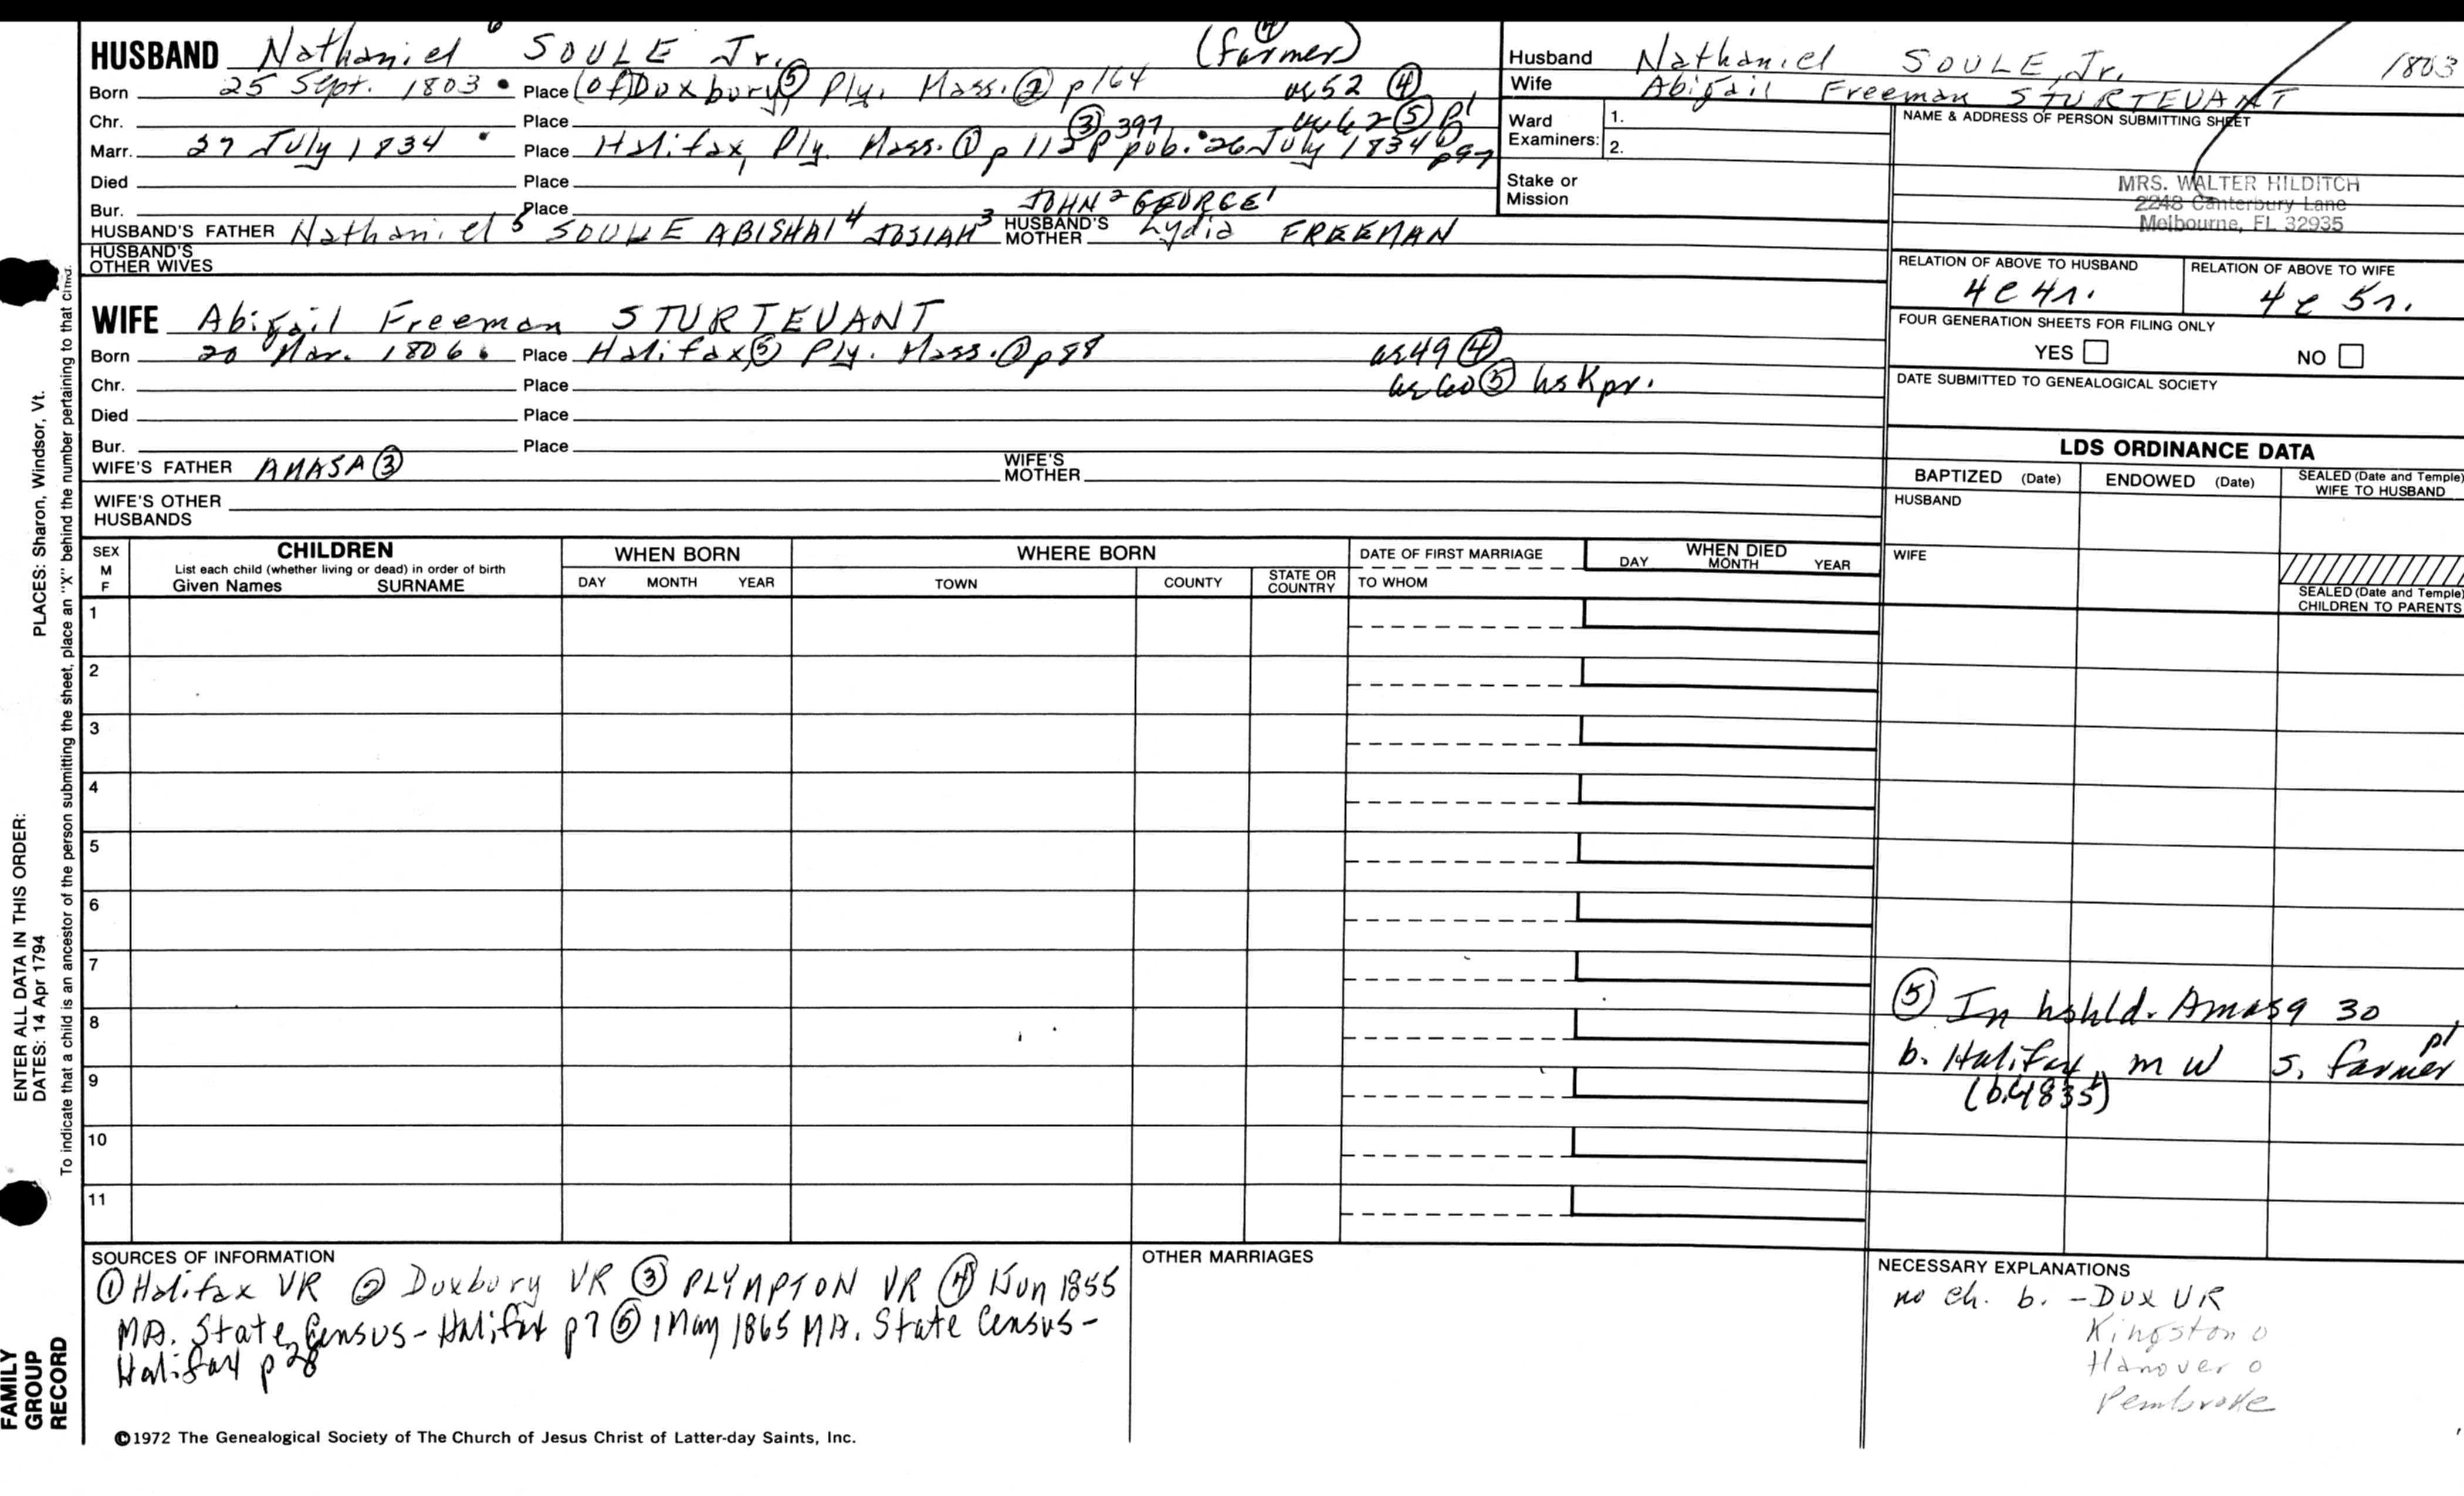 HUSBAND Nathaniel 6 SOULE Jr. (farmer) ④
Born 25 Sept. 1803 • Place (of) Duxbury ⑤ Ply. Mass. ② p164 ae 52 ④
Chr. Place ③ p 397 ae 62 ⑤ p1
Marr. 27 July 1834 • Place Halifax, Ply. Mass. ① p 112 pub. • 26 July 1834 p97
Died Place
Bur. Place JOHN 2 GEORGE 1
HUSBAND'S FATHER Nathaniel 5 SOULE ABISHAI 4 JOSIAH 3 HUSBAND'S MOTHER Lydia FREEMAN
HUSBAND'S OTHER WIVES
WIFE Abigail Freeman STURTEVANT
Born 20 Mar. 1806 • Place Halifax ⑤ Ply. Mass. ① p88 ae 49 ④
Chr. Place ae 60 ⑤ hskpr.
Died Place
Bur. Place
WIFE'S FATHER AMASA ③ WIFE'S MOTHER
WIFE'S OTHER HUSBANDS
Husband Nathaniel SOULE, Jr. 1803
Wife Abigail Freeman STURTEVANT
Ward Examiners: 1.
2.
Stake or Mission
NAME & ADDRESS OF PERSON SUBMITTING SHEET
MRS. WALTER HILDITCH
2248 Canterbury Lane
Melbourne, FL 32935
RELATION OF ABOVE TO HUSBAND RELATION OF ABOVE TO WIFE
4c 4r. 4c 5r.
FOUR GENERATION SHEETS FOR FILING ONLY
YES NO
DATE SUBMITTED TO GENEALOGICAL SOCIETY
LDS ORDINANCE DATA
BAPTIZED (Date) ENDOWED (Date) SEALED (Date and Temple) WIFE TO HUSBAND
HUSBAND
WIFE
SEALED (Date and Temple) CHILDREN TO PARENTS
SEX M F CHILDREN WHEN BORN WHERE BORN DATE OF FIRST MARRIAGE WHEN DIED
List each child (whether living or dead) in order of birth
Given Names SURNAME DAY MONTH YEAR TOWN COUNTY STATE OR COUNTRY TO WHOM DAY MONTH YEAR
1
2
3
4
5
6
7
8
9
10
11
⑤ In hshld. Amasa 30
b. Halifax, m w s. farmer p1
(b. 1835)
SOURCES OF INFORMATION
① Halifax VR ② Duxbury VR ③ PLYMPTON VR ④ 1 Jun 1855
MA. State Census - Halifax p7 ⑤ 1 May 1865 MA. State Census -
Halifax p28
OTHER MARRIAGES
NECESSARY EXPLANATIONS
no ch. b. - Dux VR
Kingston o
Hanover o
Pembroke
©1972 The Genealogical Society of The Church of Jesus Christ of Latter-day Saints, Inc.
PLACES: Sharon, Windsor, Vt.
ENTER ALL DATA IN THIS ORDER:
DATES: 14 Apr 1794
To indicate that a child is an ancestor of the person submitting the sheet, place an "X" behind the number pertaining to that child.
FAMILY
GROUP
RECORD